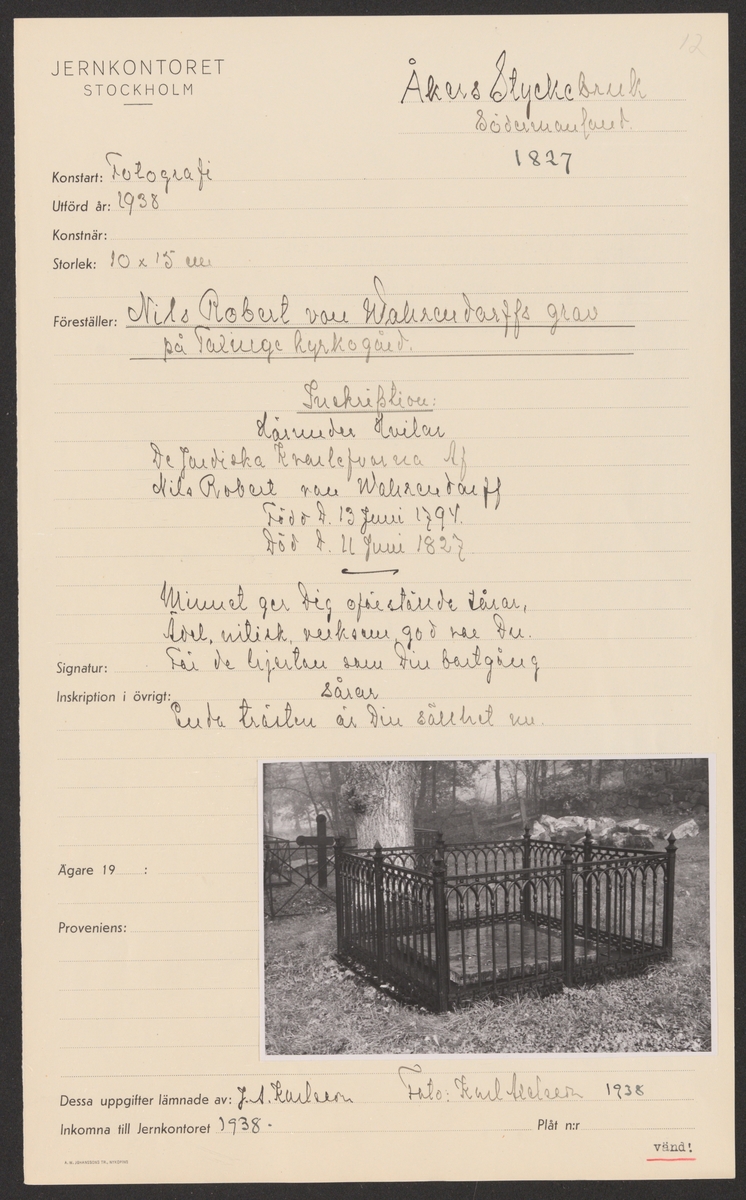 12
JERNKONTORET
STOCKHOLM
Åkers Styckebruk
Södermanland.
1827
Konstart: Fotografi
Utförd år: 1938
Konstnär:
Storlek: 10 x 15 cm
Föreställer: Nils Robert von Wahrendorffs grav
på Taxinge kyrkogård.
Inskription:
Härunder Hvilar
De Jordiska Kvarlefvorna Af
Nils Robert von Wahrendorff
Född D. 13 Juni 1794.
Död D. 11 Juni 1827
Minnet ger Dig oförstörde tårar,
Ädel, nitisk, verksam, god var Du.
Signatur: För de hjertan som Din bortgång
Inskription i övrigt: sårar
Enda trösten är Din sällhet nu.
Ägare 19 :
Proveniens:
Dessa uppgifter lämnade av: J. A. Karlsson Foto: Karl Axelsson 1938
Inkomna till Jernkontoret 1938.
Plåt n:r
vänd!